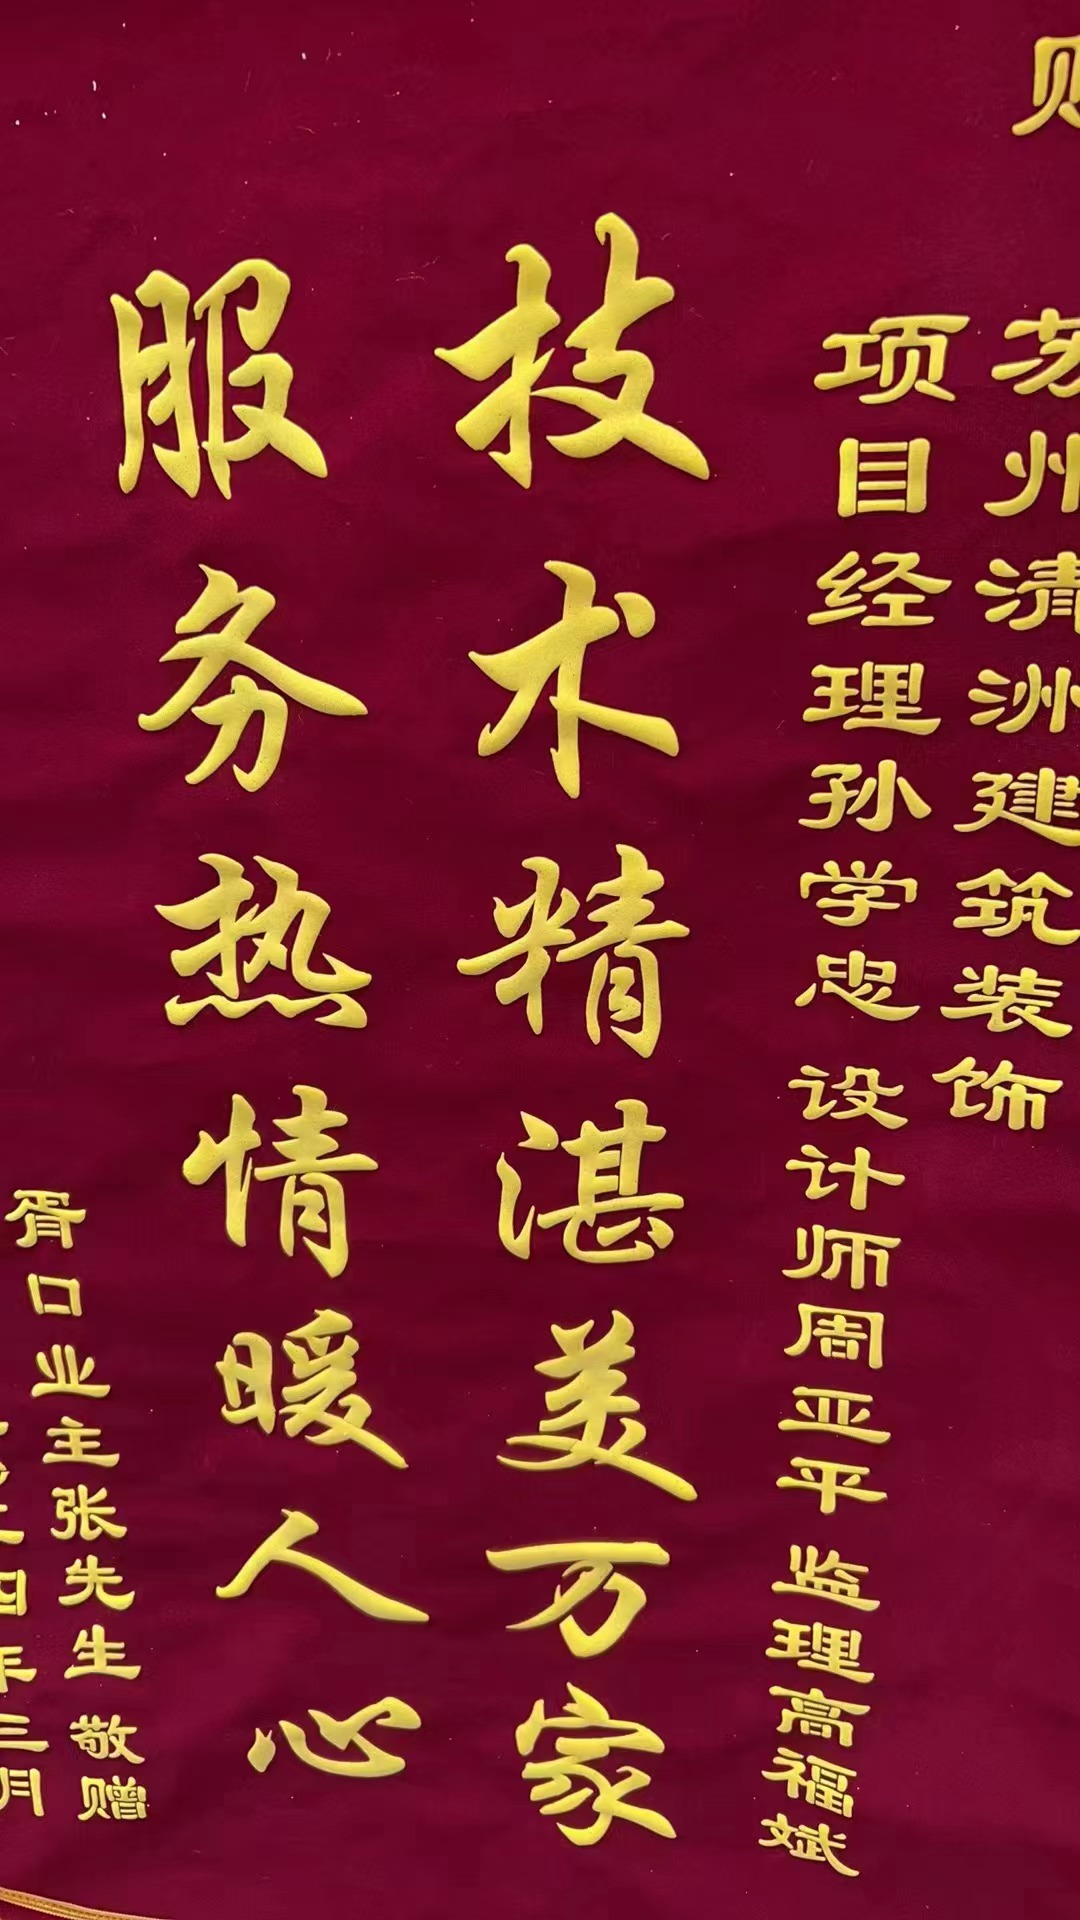 苏州清洲建筑装饰
项目经理孙学忠 设计师周亚平 监理高福斌
技术精湛美万家
服务热情暖人心
胥口业主张先生 敬赠
四年三月